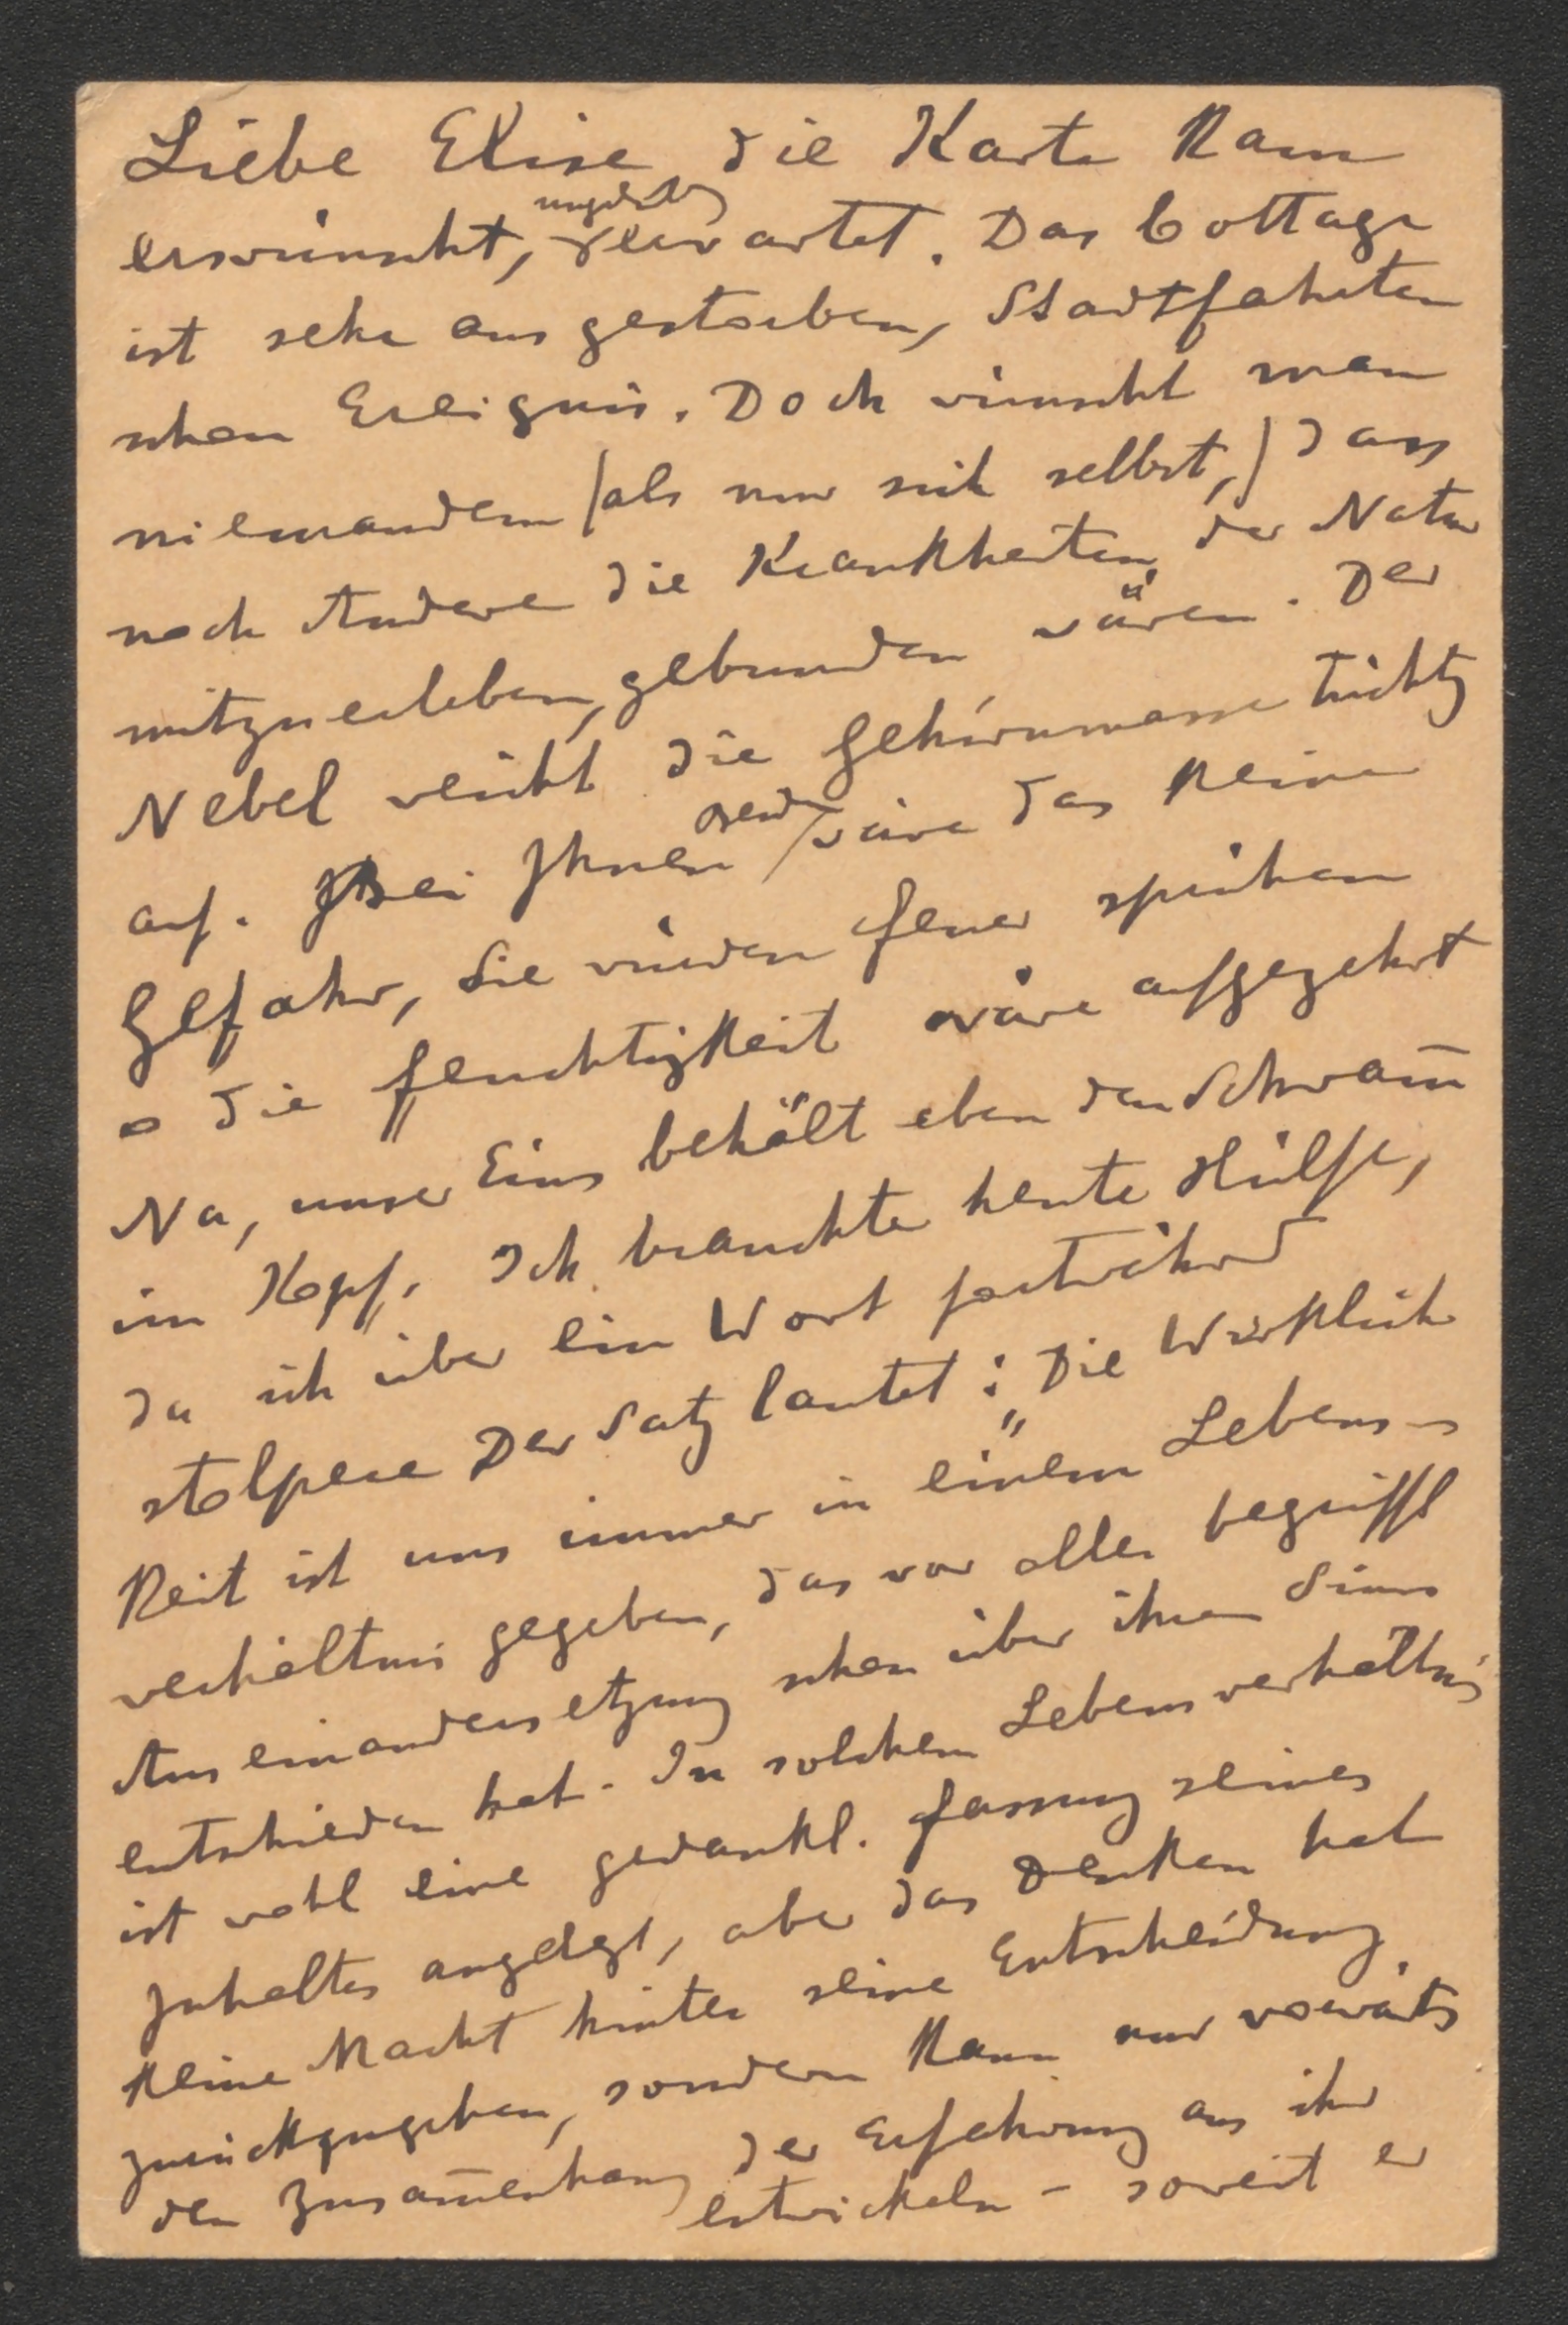 Liebe Elise die Karte kam
erwünscht, erwartet. Das Cottage
ist sehr ausgestorben, Stadtfahrten
schon Ereignis. Doch wünscht man
niemandem (als nur sich selbst,) dass
noch Andere die Krankheiten der Natur
mitzuerleben, gebunden wären. Der
Nebel weicht die Gehirnmasse tüchtig
auf. Bei Ihnen wäre das keine
Gefahr, Sie würden Feuer sprühen
die Feuchtigkeit wäre aufgezehrt
Na, unser Eins behält eben den Schwam̅
im Kopf. Ich brauchte heute Hülfe,
da ich über ein Wort fortwährd
stolpere Der Satz lautet: "Die Wirklich
keit ist uns immer in einem Lebens-
verhältnis gegeben, das vor aller begriffl
Auseinandersetzung schon über ihren Sinn
entschieden hat. In solchem Lebensverhältnis
ist wohl eine gedankl. Fassung seines
Inhaltes angelegt, aber das Denken hat
keine Macht hinter seine Entscheidung
zurückzugehen, sondern kann nur vorwärts
den Zusam̅enhang der Erfahrung aus ihr
entwickeln – soweit er